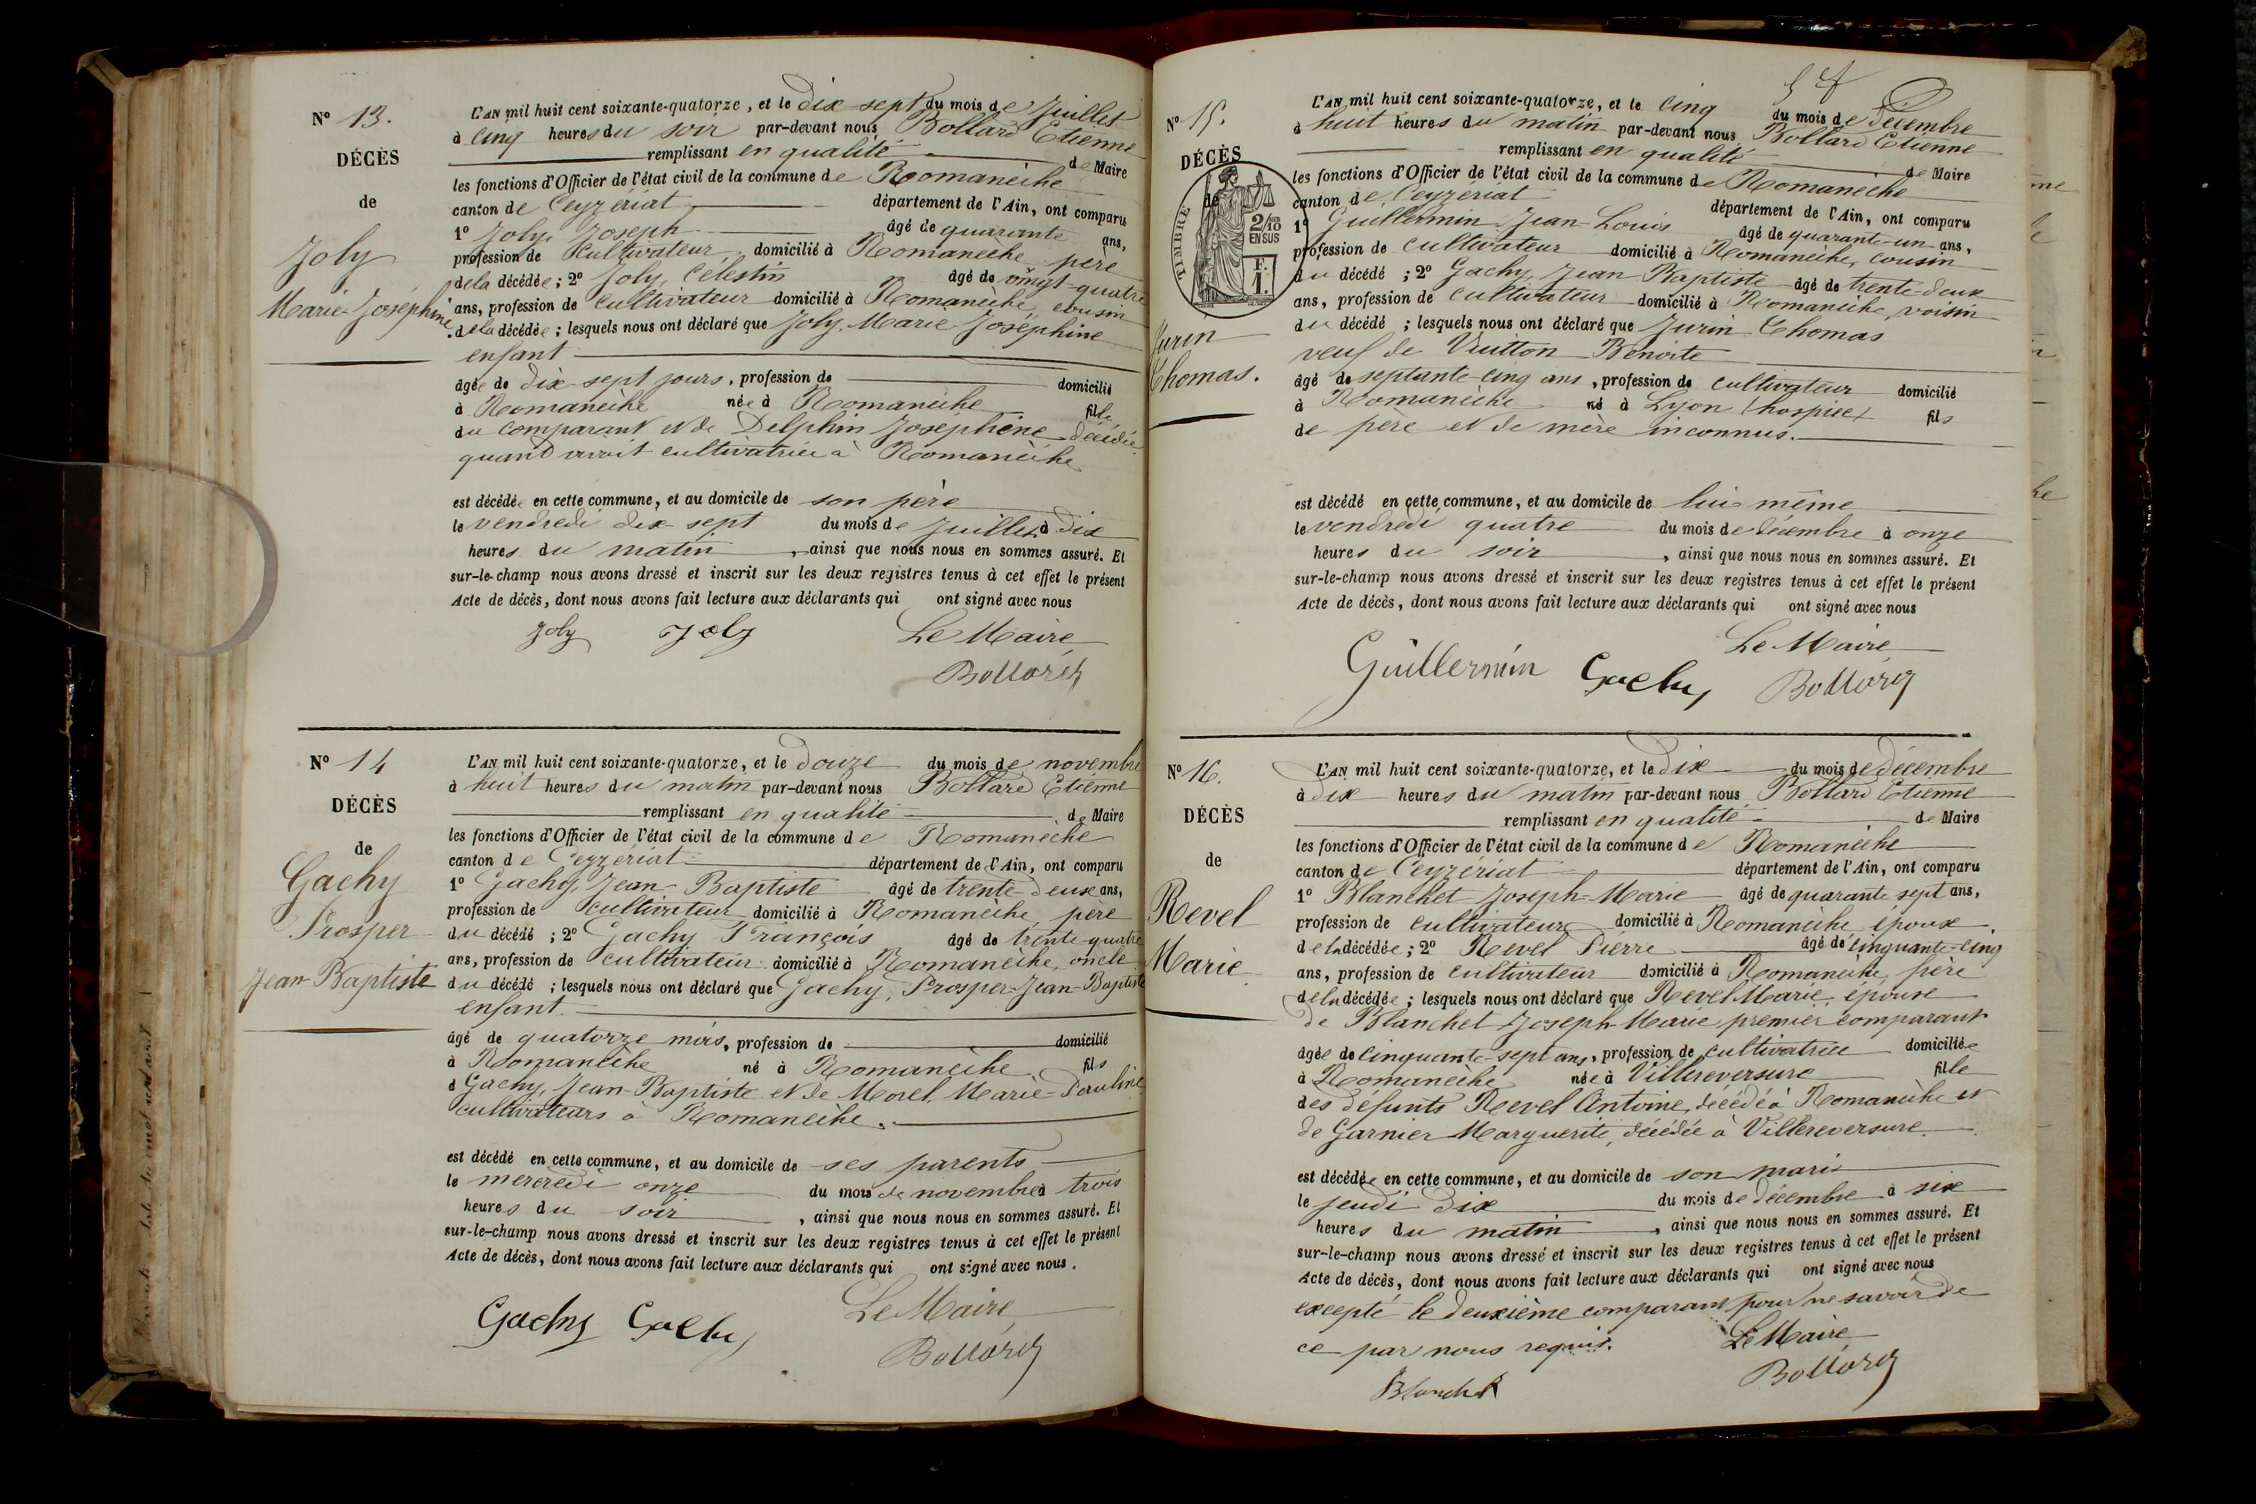 N° 13.
DÉCÈS
de
Joly
Marie-Joséphine.
L'AN mil huit cent soixante-quatorze, et le dix-sept du mois de Juillet
à cinq heures du soir par-devant nous Bollard Etienne
remplissant en qualité de Maire
les fonctions d'Officier de l'état civil de la commune de Romanèche
canton de Ceyzériat département de l'Ain, ont comparu
1° Joly, Joseph âgé de quarante ans,
profession de cultivateur domicilié à Romanèche père
de la décédée ; 2° Joly, Célestin âgé de vingt-quatre
ans, profession de cultivateur domicilié à Romanèche, cousin
de la décédée ; lesquels nous ont déclaré que Joly, Marie Joséphine
enfant
âgée de dix-sept jours, profession de domicilié
à Romanèche née à Romanèche fille
du comparant et de Delphin Joséphine décédée
quand vivait cultivatrice à Romanèche
est décédée en cette commune, et au domicile de son père
le vendredi dix sept du mois de Juillet à dix
heures du matin, ainsi que nous nous en sommes assuré. Et
sur-le-champ nous avons dressé et inscrit sur les deux registres tenus à cet effet le présent
Acte de décès, dont nous avons fait lecture aux déclarants qui ont signé avec nous
Joly Joly Le Maire
Bollard
N° 14
DÉCÈS
de
Gachy
Prosper
Jean-Baptiste
L'AN mil huit cent soixante-quatorze, et le douze du mois de novembre
à huit heures du matin par-devant nous Bollard Etienne
remplissant en qualité de Maire
les fonctions d'Officier de l'état civil de la commune de Romanèche
canton de Ceyzériat département de l'Ain, ont comparu
1° Gachy, Jean-Baptiste âgé de trente-deux ans,
profession de cultivateur domicilié à Romanèche, père
du décédé ; 2° Gachy François âgé de trente-quatre
ans, profession de cultivateur domicilié à Romanèche, oncle
du décédé ; lesquels nous ont déclaré que Gachy, Prosper-Jean-Baptiste
enfant.
âgé de quatorze mois, profession de domicilié
à Romanèche né à Romanèche fils
d Gachy, Jean-Baptiste et de Morel Marie-Pauline
cultivateurs à Romanèche.
est décédé en cette commune, et au domicile de ses parents
le mercredi onze du mois de novembre à trois
heures du soir, ainsi que nous nous en sommes assuré. Et
sur-le-champ nous avons dressé et inscrit sur les deux registres tenus à cet effet le présent
Acte de décès, dont nous avons fait lecture aux déclarants qui ont signé avec nous.
Gachy Gachy Le Maire
Bollard
N° 15.
DÉCÈS
de
TIMBRE
2/10 EN SUS
F. 1.
Jurin
Thomas.
L'AN mil huit cent soixante-quatorze, et le cinq du mois de Décembre
à huit heures du matin par-devant nous Bollard Etienne
remplissant en qualité de Maire
les fonctions d'Officier de l'état civil de la commune de Romanèche
canton de Ceyzériat département de l'Ain, ont comparu
1° Guillermin Jean-Louis âgé de quarante-un ans,
profession de cultivateur domicilié à Romanèche, cousin
du décédé ; 2° Gachy, Jean Baptiste âgé de trente-deux
ans, profession de cultivateur domicilié à Romanèche, voisin
du décédé ; lesquels nous ont déclaré que Jurin Thomas
veuf de Vuitton Benoite
âgé de septante-cinq ans, profession de cultivateur domicilié
à Romanèche né à Lyon (hospice) fils
de père et de mère inconnus.
est décédé en cette commune, et au domicile de lui même
le vendredi quatre du mois de décembre à onze
heures du soir, ainsi que nous nous en sommes assuré. Et
sur-le-champ nous avons dressé et inscrit sur les deux registres tenus à cet effet le présent
Acte de décès, dont nous avons fait lecture aux déclarants qui ont signé avec nous
Le Maire
Guillermin Gachy Bollard
N° 16.
DÉCÈS
de
Revel
Marie
L'AN mil huit cent soixante-quatorze, et le dix du mois de décembre
à dix heures du matin par-devant nous Bollard Etienne
remplissant en qualité de Maire
les fonctions d'Officier de l'état civil de la commune de Romanèche
canton de Ceyzériat département de l'Ain, ont comparu
1° Blanchet Joseph-Marie âgé de quarante sept ans,
profession de cultivateur domicilié à Romanèche, époux
de la décédée ; 2° Revel Pierre âgé de cinquante-cinq
ans, profession de cultivateur domicilié à Romanèche, père
de la décédée ; lesquels nous ont déclaré que Revel Marie, épouse
de Blanchet Joseph-Marie premier comparant
âgée de cinquante-sept ans, profession de cultivatrice domiciliée
à Romanèche née à Villereversure fille
des défunts Revel Antoine, décédé à Romanèche et
de Garnier Marguerite, décédée à Villereversure.
est décédée en cette commune, et au domicile de son mari
le jeudi dix du mois de décembre à six
heures du matin, ainsi que nous nous en sommes assuré. Et
sur-le-champ nous avons dressé et inscrit sur les deux registres tenus à cet effet le présent
Acte de décès, dont nous avons fait lecture aux déclarants qui ont signé avec nous
excepté le deuxième comparant pour ne savoir de
ce par nous requis. Le Maire
Blanchet Bollard